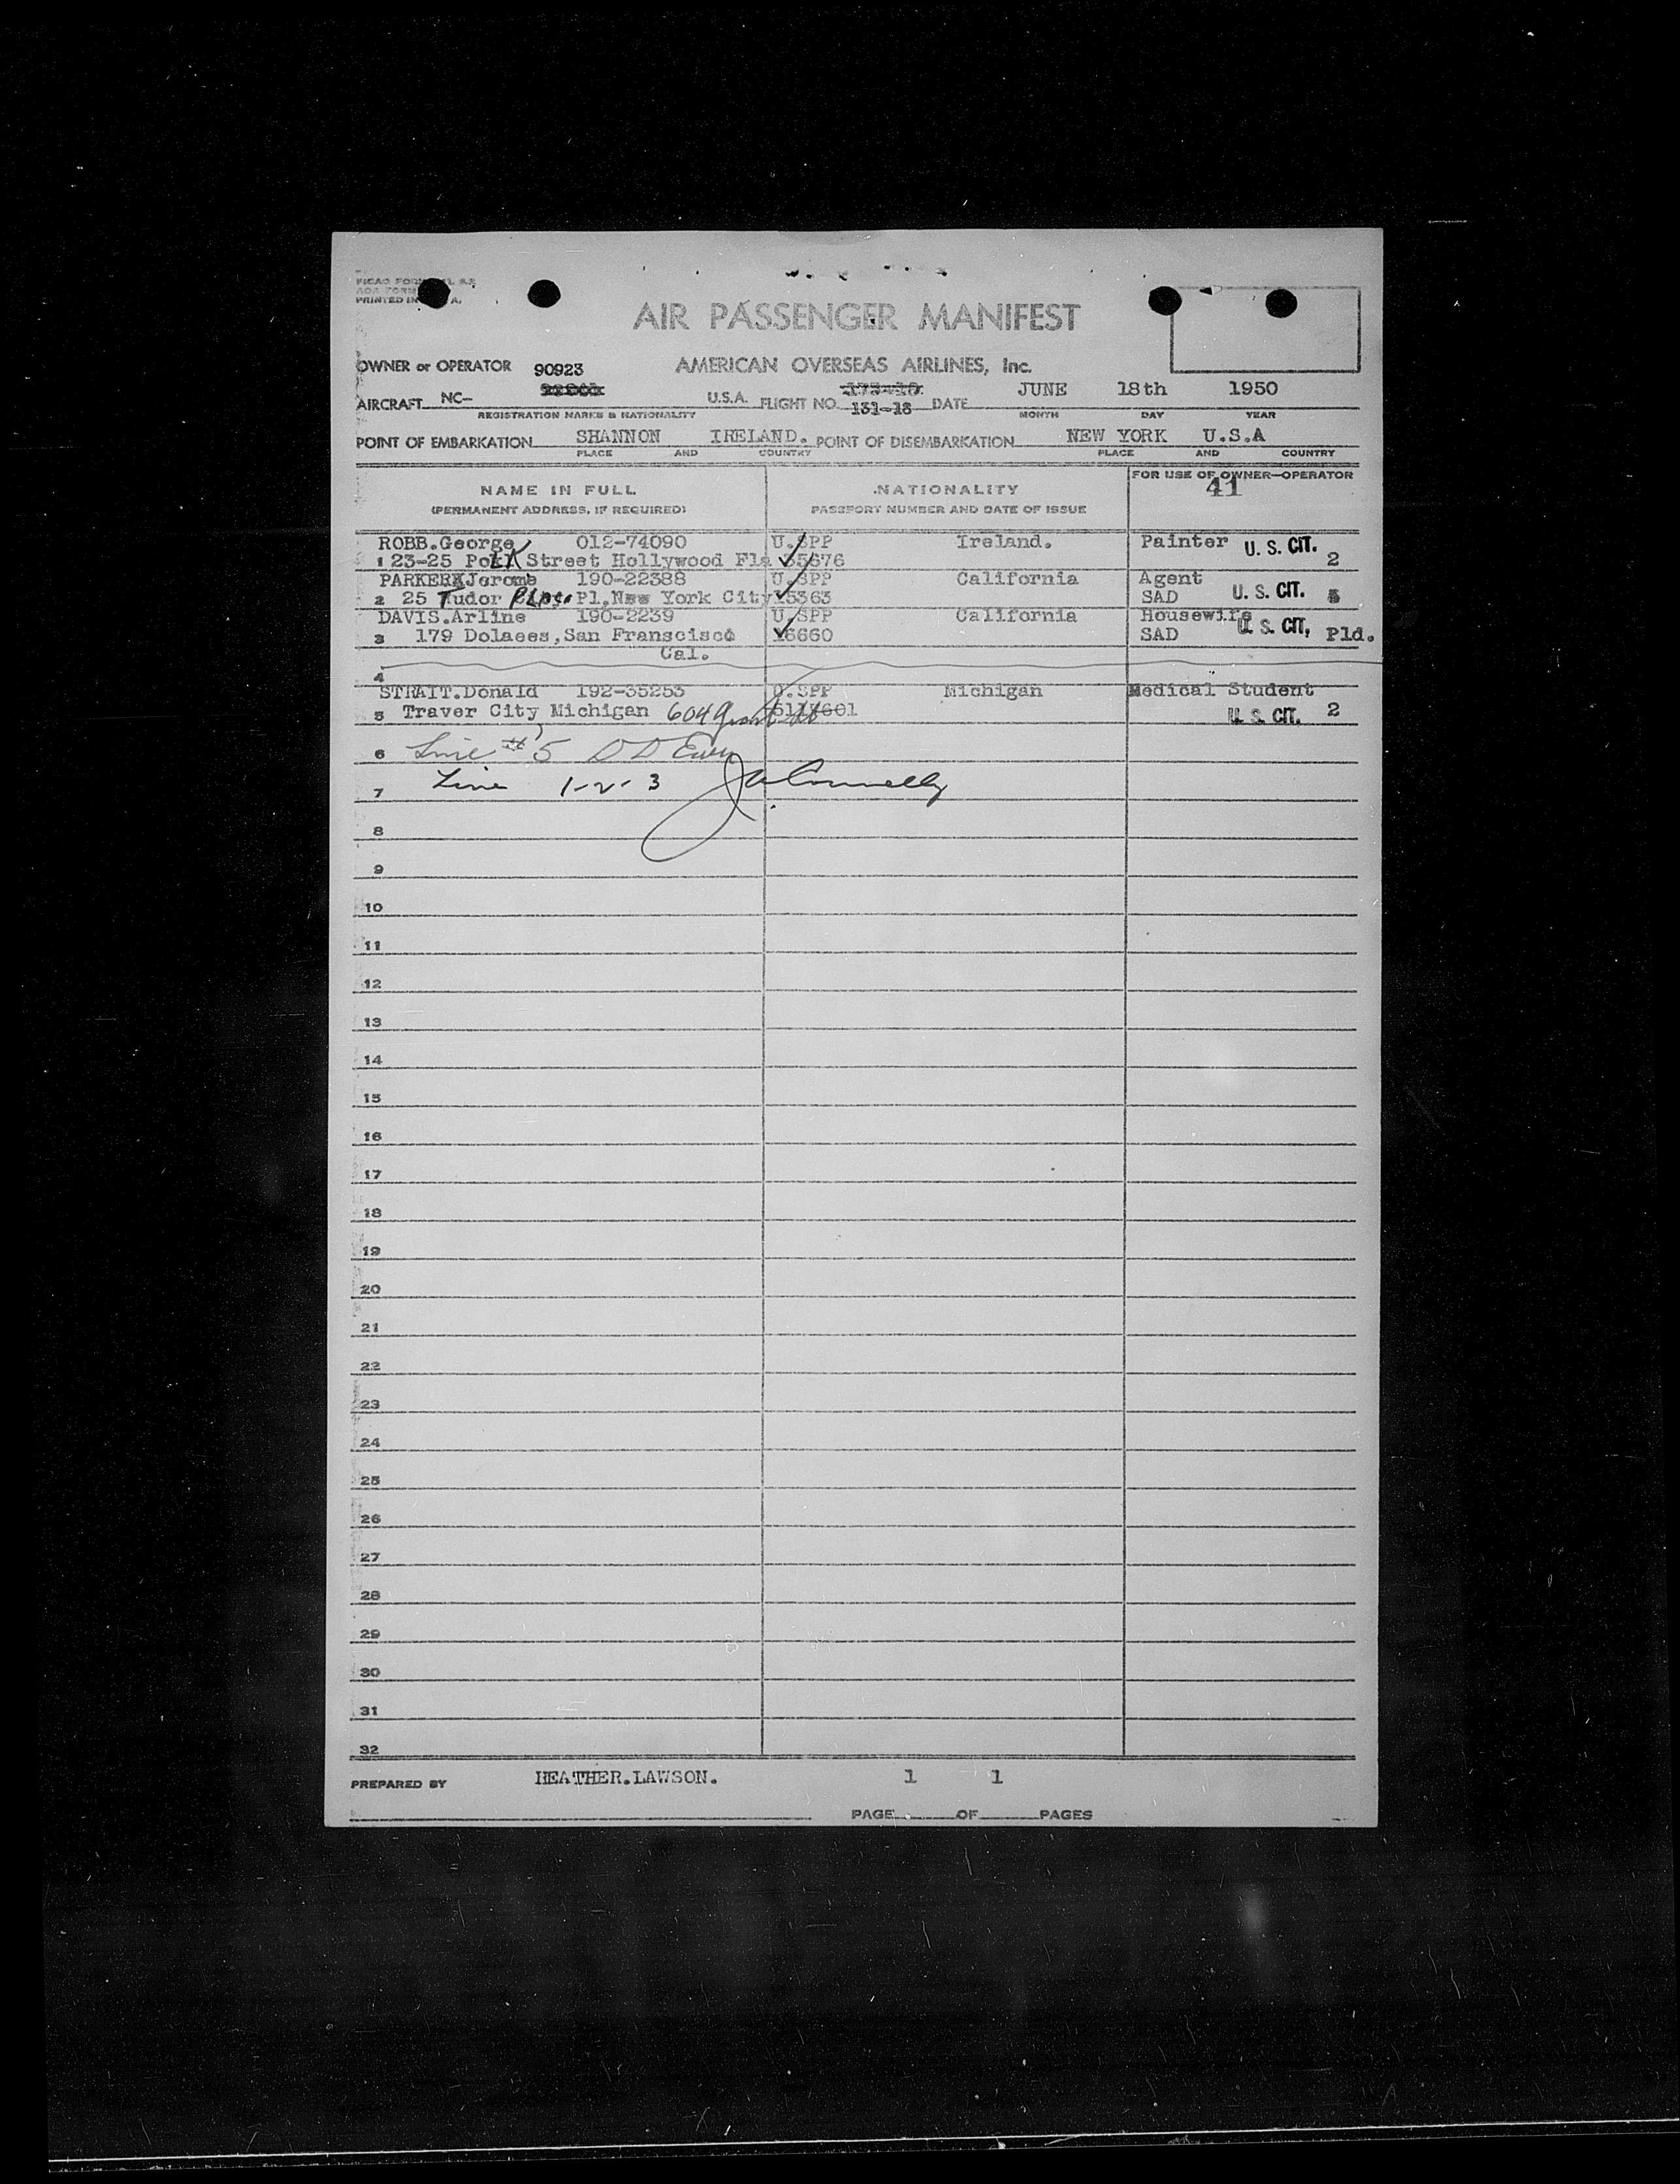 PRINTED IN
AIR PASSENGER MANIFEST
OWNER or OPERATOR 90923 AMERICAN OVERSEAS AIRLINES, Inc.
AIRCRAFT NC- U.S.A. FLIGHT NO. 131-18 DATE JUNE 18th 1950
REGISTRATION MARKS & NATIONALITY MONTH DAY YEAR
POINT OF EMBARKATION SHANNON IRELAND. POINT OF DISEMBARKATION NEW YORK U.S.A
PLACE AND COUNTRY PLACE AND COUNTRY
NAME IN FULL NATIONALITY FOR USE OF OWNER—OPERATOR
41
(PERMANENT ADDRESS, IF REQUIRED) PASSPORT NUMBER AND DATE OF ISSUE
ROBB.George 012-74090 U.SPP Ireland. Painter U. S. CIT.
1 23-25 Polk Street Hollywood Fla 35676 2
PARKER Jerome 190-22388 U.SPP California Agent
2 25 Tudor Pl,New York City 15363 SAD U. S. CIT.
DAVIS.Arline 190-2239 U.SPP California Housewife
3 179 Dolaees,San Franscisco 16660 SAD U. S. CIT. Pld.
Cal.
4
STRAIT.Donald 192-35253 U.SPP Michigan Medical Student
5 Traver City Michigan 604 U. S. CIT. 2
6 Line #5 D D
7 Line 1-2-3 J Connelly
8
9
10
11
12
13
14
15
16
17
18
19
20
21
22
23
24
25
26
27
28
29
30
31
32
PREPARED BY HEATHER.LAWSON. 1 1
PAGE OF PAGES